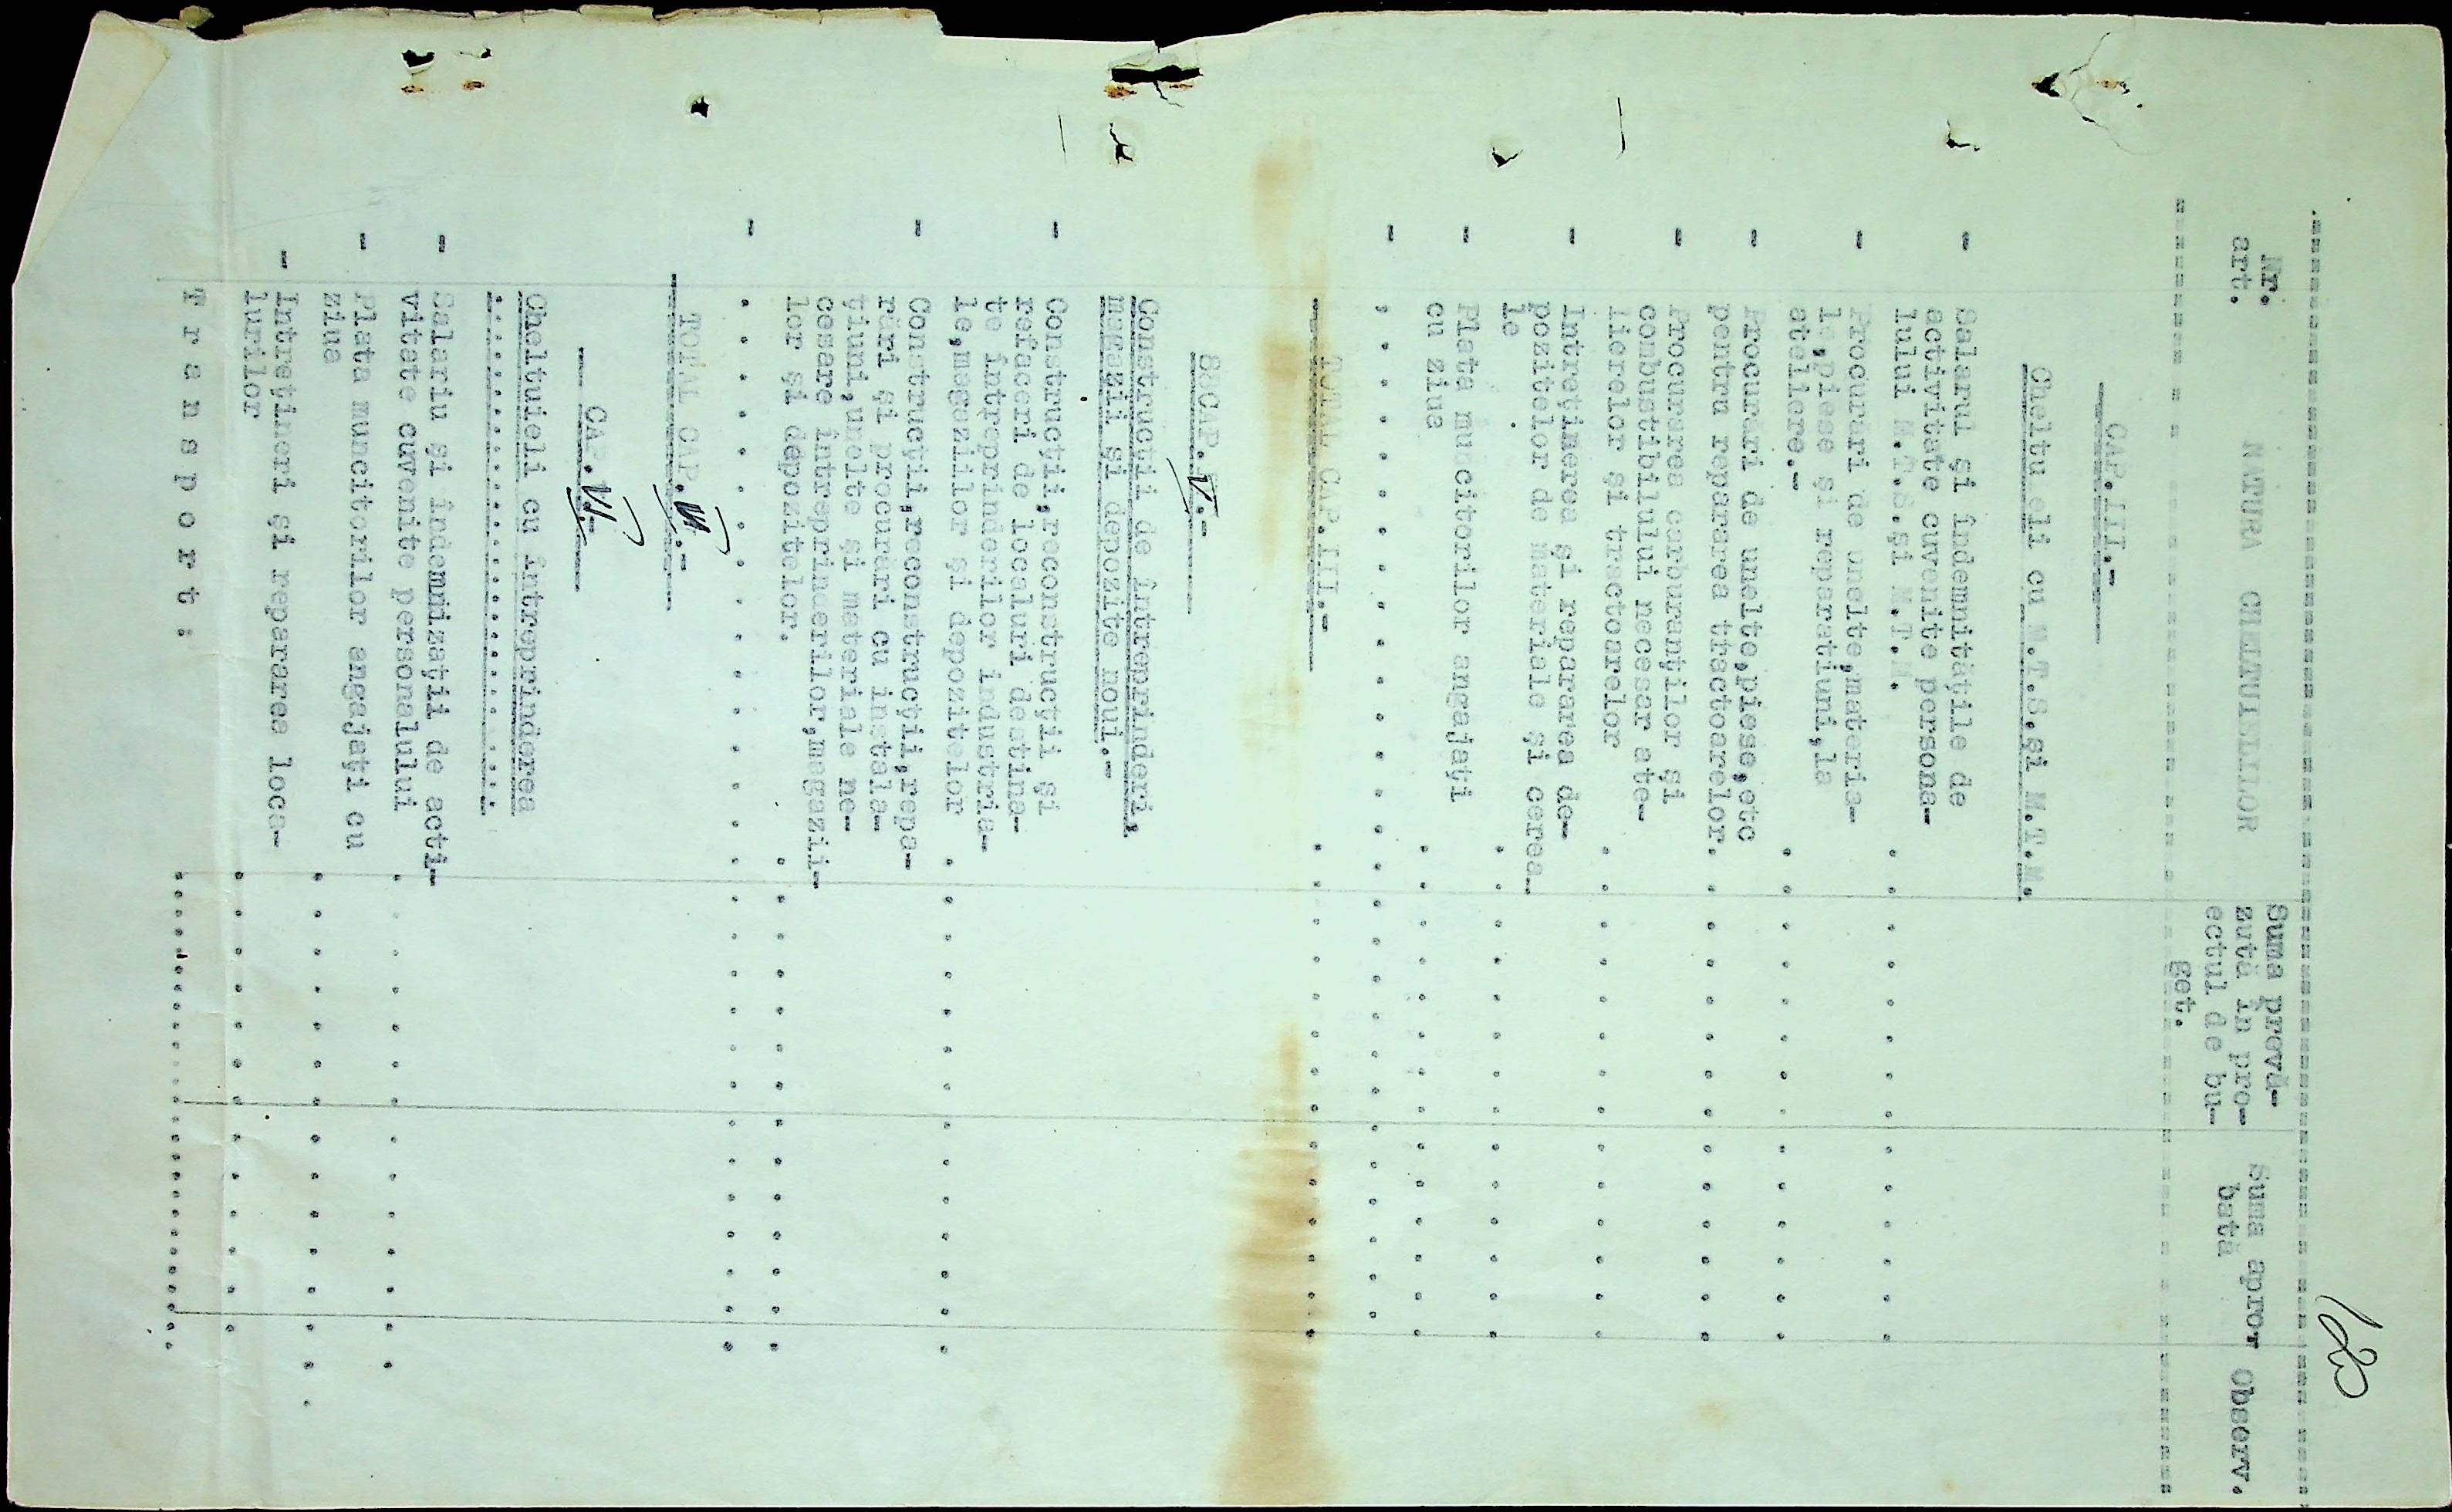 120
Nr. art. NATURA CHELTUIELILOR Suma prevă- Suma apror Observ.
zută în pro- bată
ectul de bu-
get.
CAP.III.-
Cheltu eli cu M.T.S.şi M.T.M.
- Salarul şi îndemnităţile de
activitate cuvenite persona-
lului M.T.S.şi M.T.M.
- Procurări de unelte,materia-
le,piese şi reparaţiuni,la
ateliere.-
- Procurări de unelte,piese,etc
pentru repararea tractoarelor.
- Procurarea carburanţilor şi
combustibilului necesar ate-
lierelor şi tractoarelor
- Intreţinerea şi repararea de-
pozitelor de materiale şi cerea-
le
- Plata muncitorilor angajaţi
cu ziua
-
TOTAL CAP.III.-
CAP. V.-
Construcţii de întreprinderi,
magazii şi depozite noui.-
- Construcţii,reconstrucţii şi
refaceri de localuri destina-
te întreprinderilor industria-
le,magaziilor şi depozitelor
- Construcţii,reconstrucţii,repa-
rări şi procurări cu instala-
ţiuni,unelte şi materiale ne-
cesare întreprinderilor,magazii-
lor şi depozitelor.
-
TOTAL CAP. .-
CAP. VI.-
Cheltuieli cu întreprinderea
- Salariu şi îndemnizaţii de acti-
vitate cuvenite personalului
- Plata muncitorilor angajaţi cu
ziua
- Intreţineri şi repararea loca-
lurilor
T r a n s p o r t :